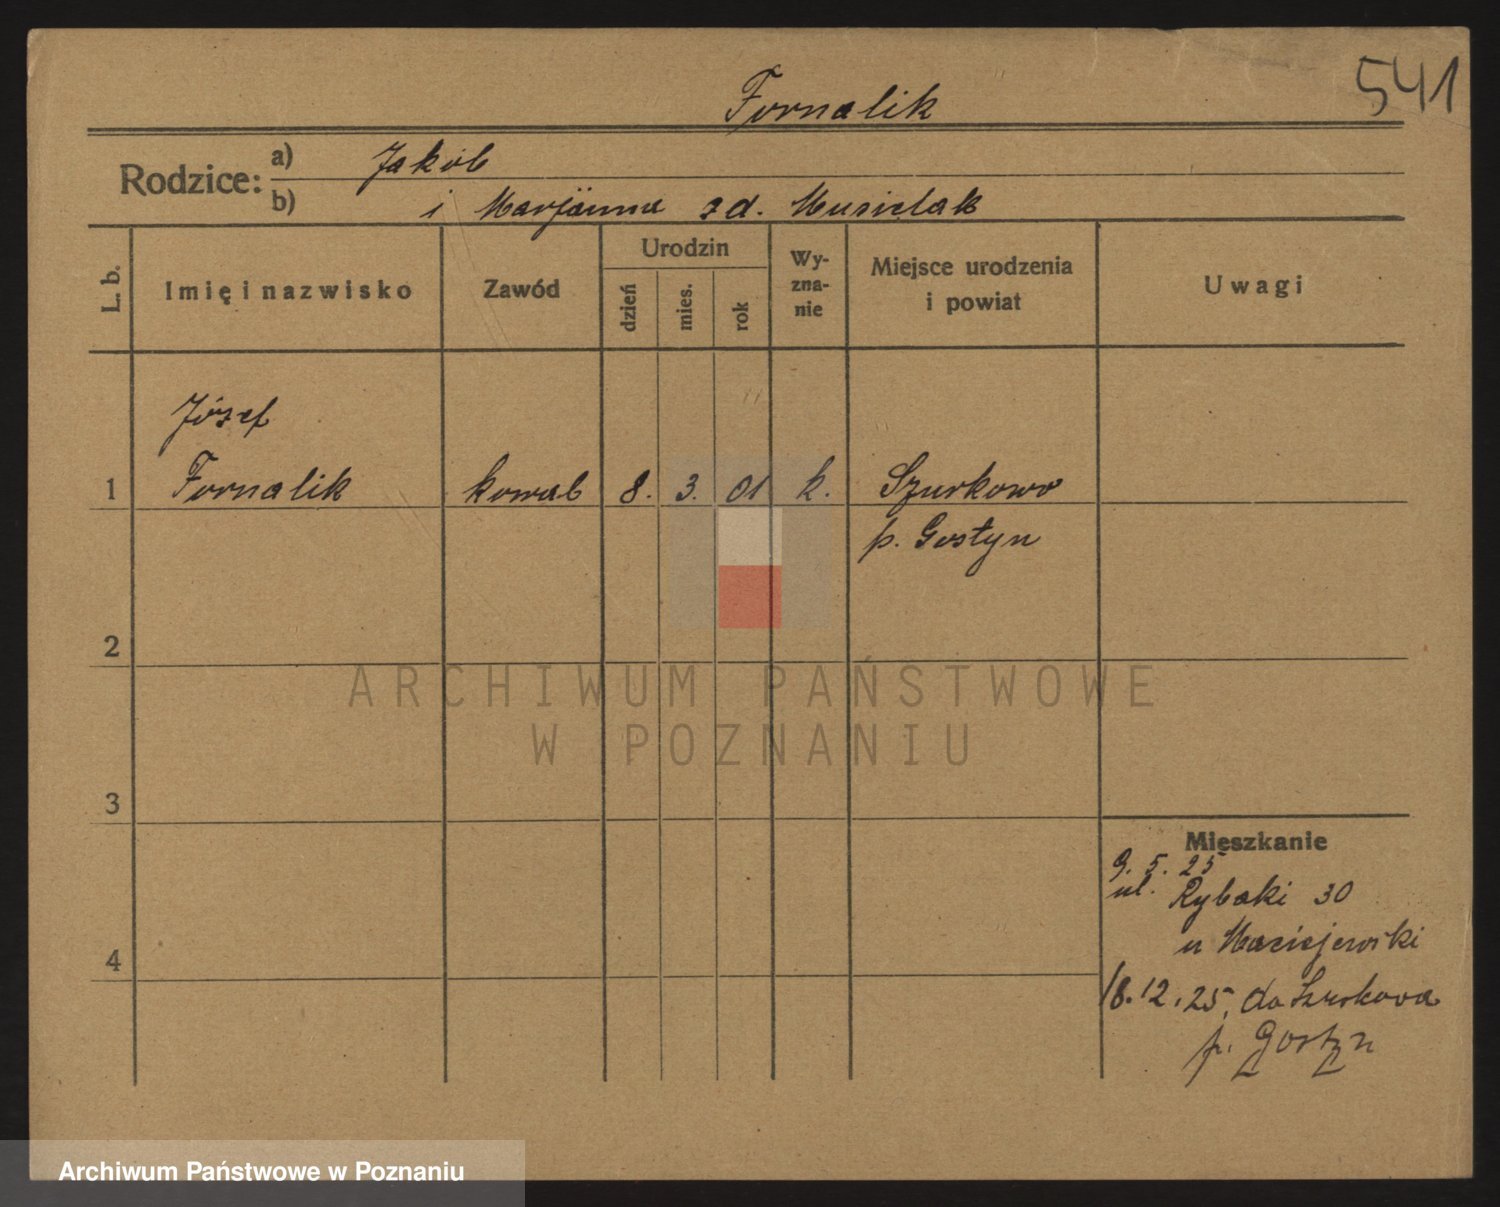 541
Fornalik
Rodzice:
a) Jakób
b) i Marjanna zd. Musielak
L. b.
Imię i nazwisko
Zawód
Urodzin
dzień
mies.
rok
Wy-
zna-
nie
Miejsce urodzenia
i powiat
Uwagi
Józef
1 Fornalik kowal 8. 3. 01 k. Szurkowo
p. Gostyn
2
3
4
Mieszkanie
9. 5. 25
ul. Rybaki 30
u Maciejewski
18.12.25. do Szurkowa
p. Gostyn
ARCHIWUM PAŃSTWOWE
W POZNANIU
Archiwum Państwowe w Poznaniu